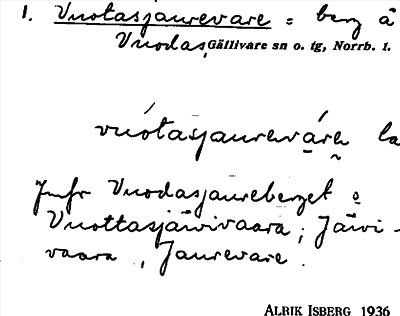 1. Vuotasjaurevare = berg å
Vuodas, Gällivare sn o. tg, Norrb. l.
vuótasjaureváre la
Jmfr Vuodasjaureberget o
Vuottasjärvivaara; Järvi-
vaara, Jaurevare.
ALRIK ISBERG 1936